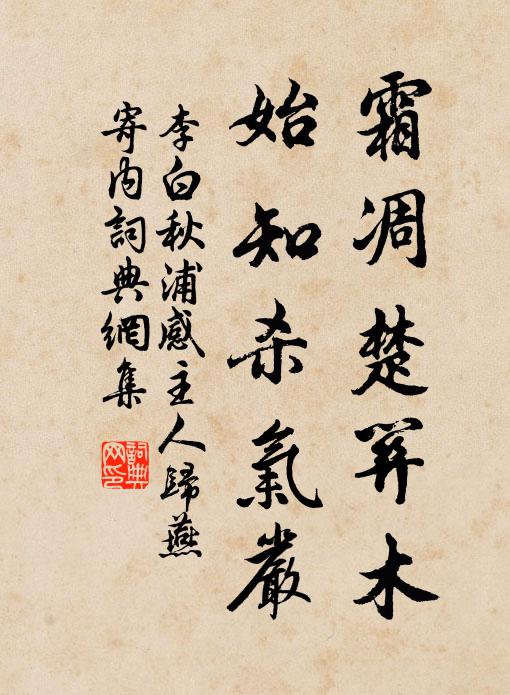 霜凋楚關木
始知杀氣嚴
李白秋浦感主人歸燕
寄内詞典網集
詞典
网印